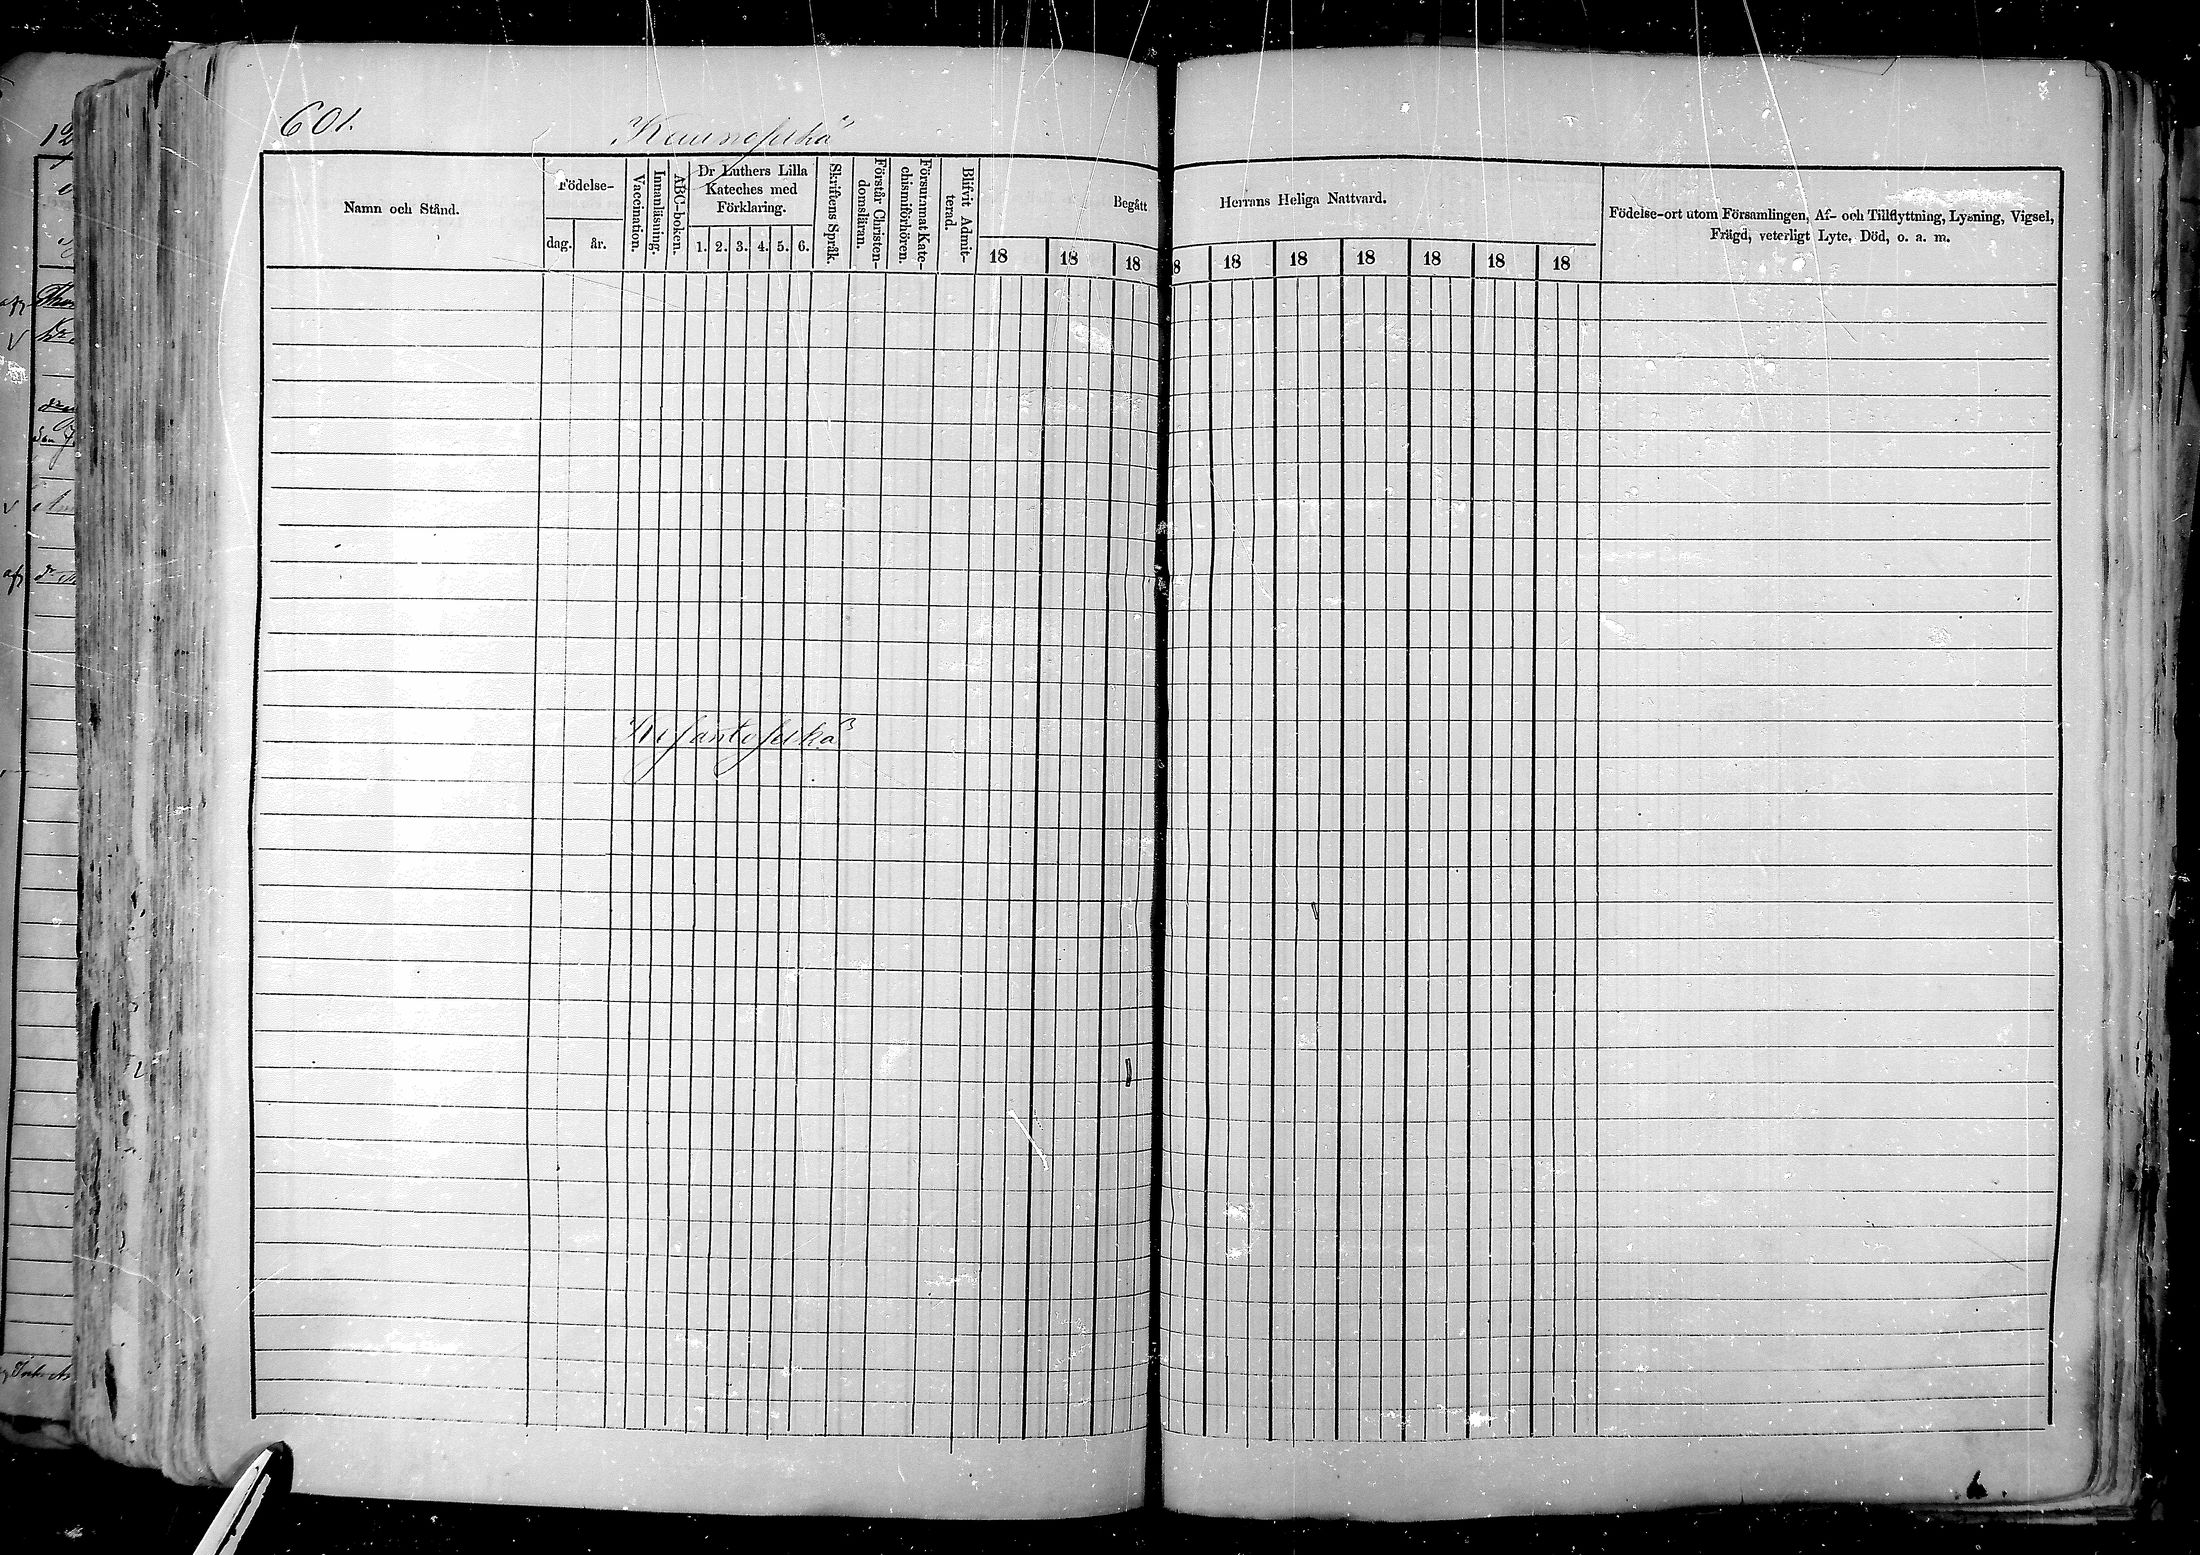 601.
Namn och Stånd.
Födelse-
dag.
år.
Vaccination.
Innanläsning.
ABC-boken.
Dr Luthers Lilla
Kateches med
Förklaring.
1. 2. 3. 4. 5. 6.
Skriftens Språk.
Förstår Christen-
domsläran.
Försummat Kate-
chismiförhören.
Blifvit Admit-
terad.
Begått Herrans Heliga Nattvard.
18 18 18 18 18 18 18 18 18
Födelse-ort utom Församlingen, Af- och Tillflyttning, Lysning, Vigsel,
Frägd, veterligt Lyte, Död, o. a. m.